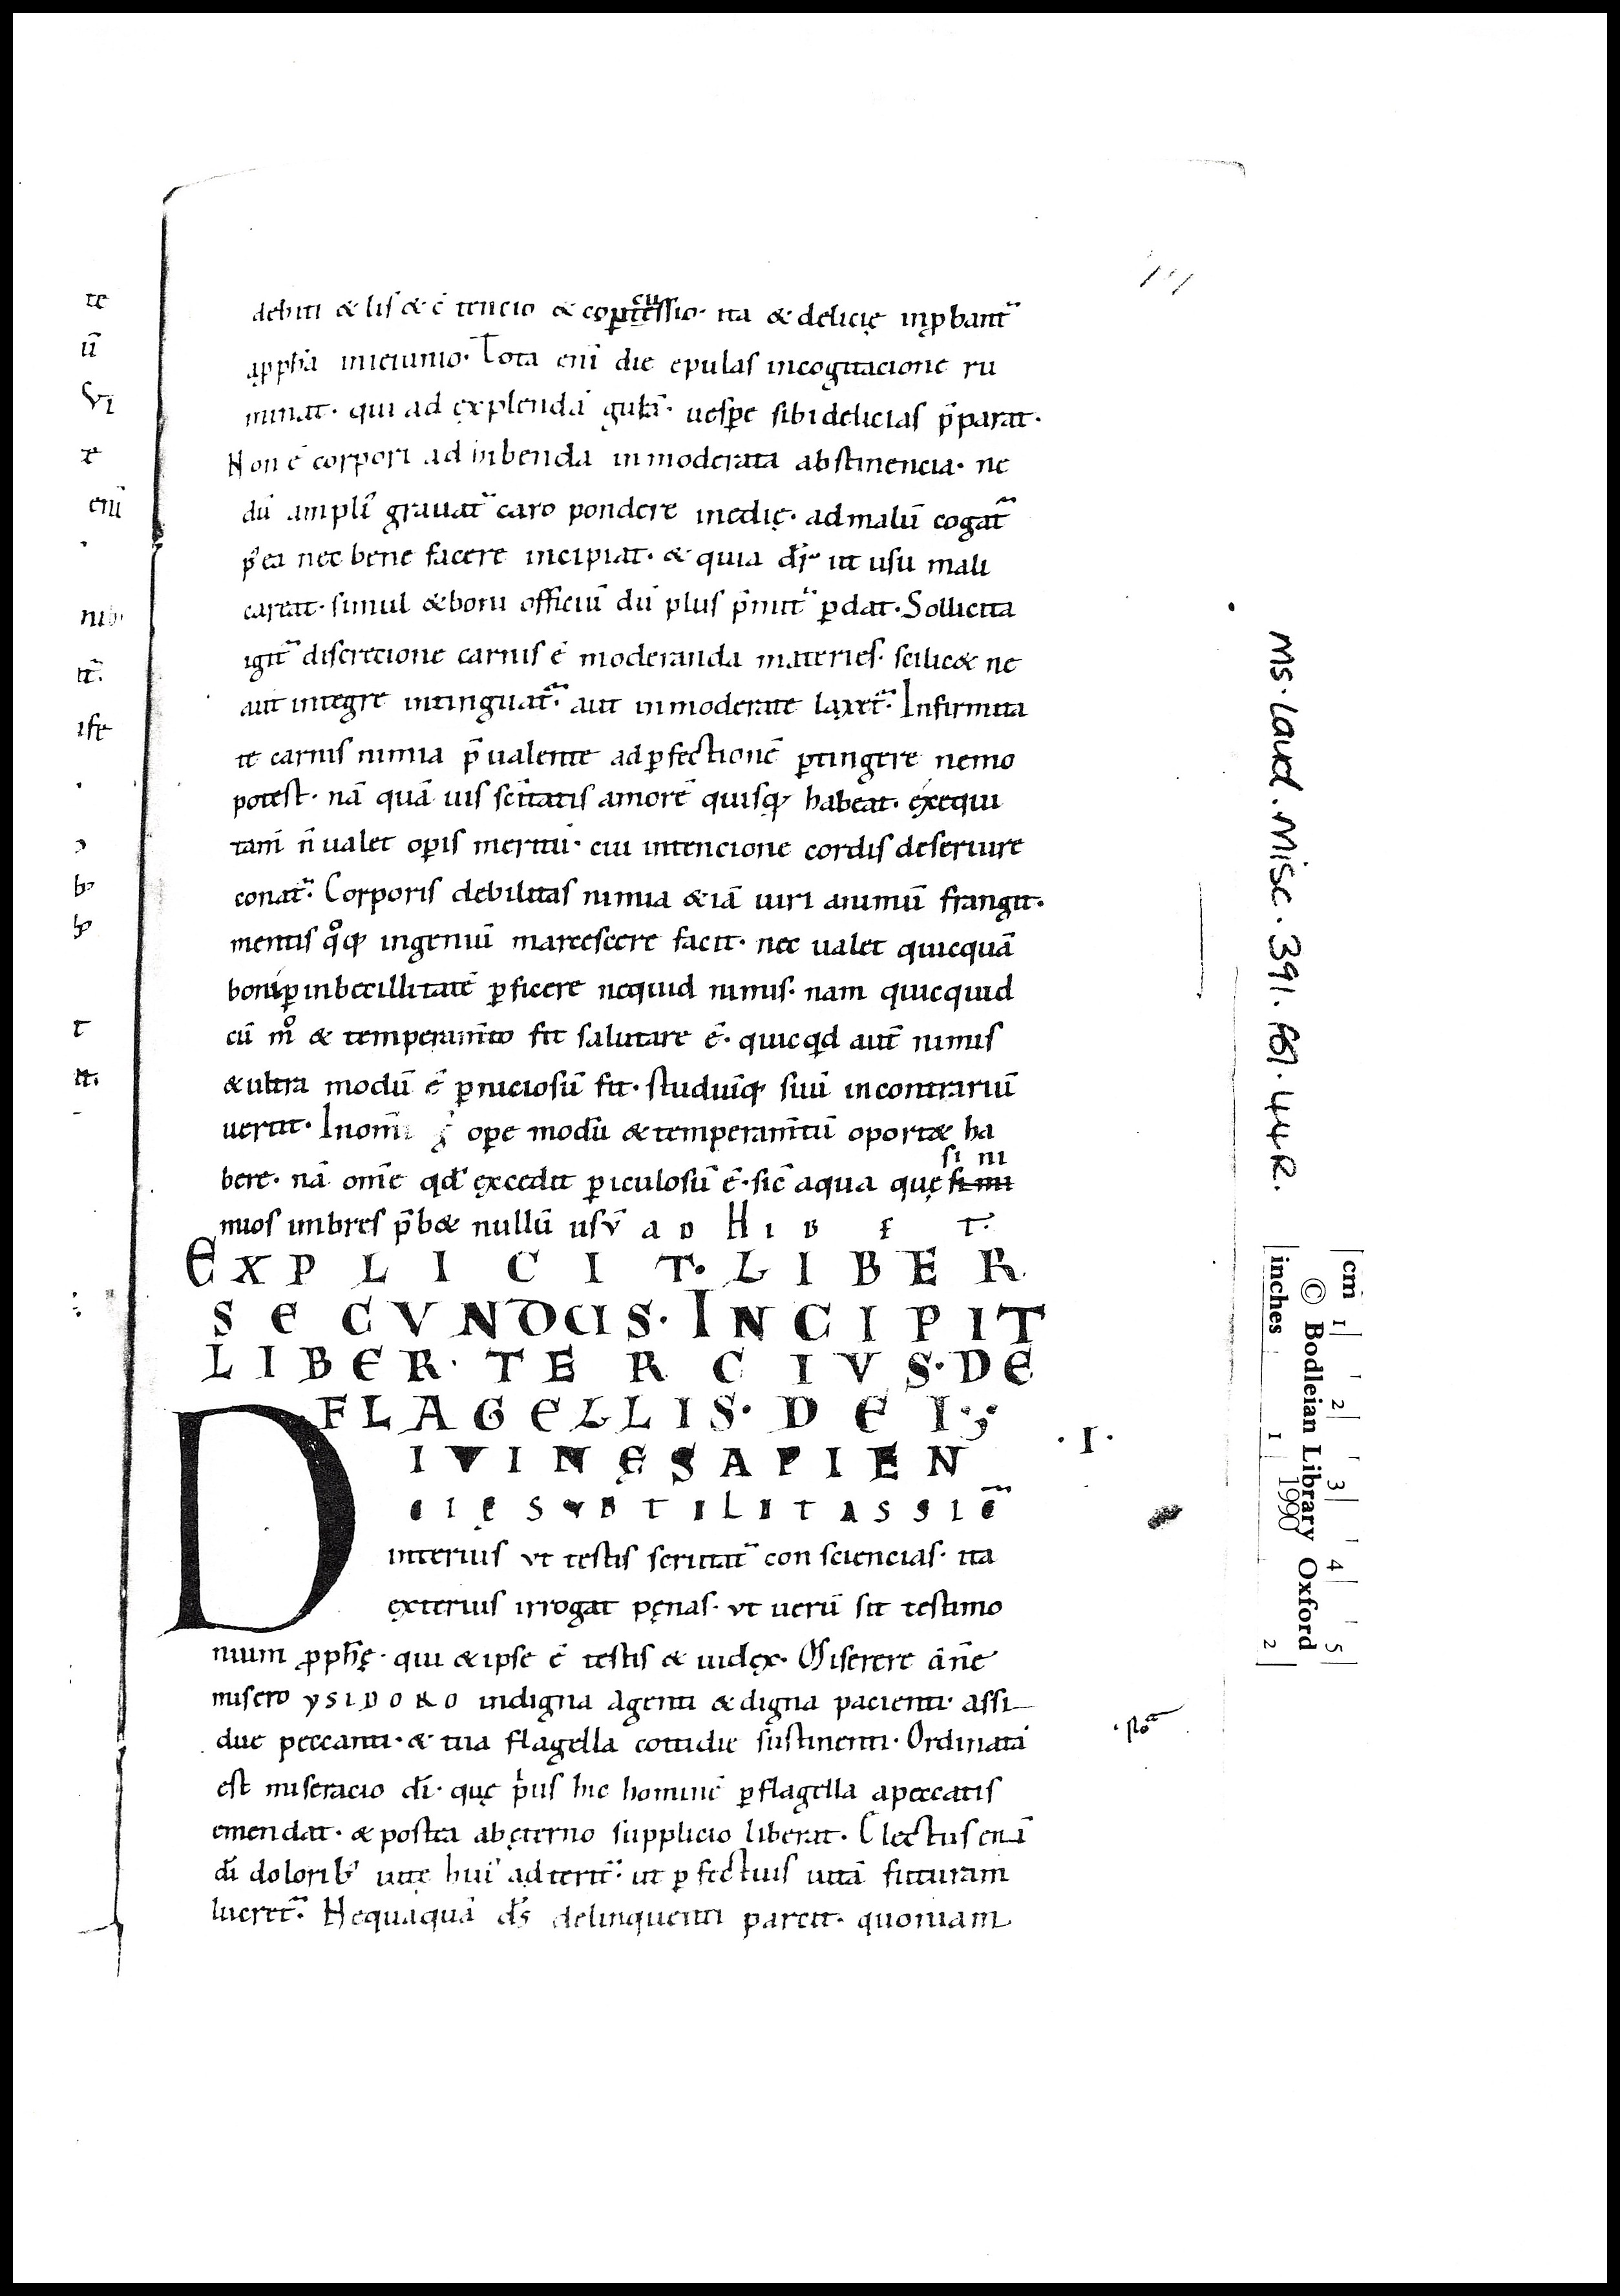 debiti & lis & c̄tencio & copcussio· ita & delicię inp̱bant᷑
a pph̄a inieiunio· Tota eni̅ die epulas incogitacione ru
minat· qui ad explenda̅ gula̅· uesp̱e sibi delicias p̄parat·
Non e̅ corpori adhibenda inmoderata abstinencia· ne
du̅ ampli᾽ grauat᷑ caro pondere inedię· admalu̅ cogat᷑
nec bene facere incipiat· & quia ut usu mali
careat· simul & boni officiu̅ du̅ plus p̄mit᷑ p̱dat· Sollicita
igit᷑ discrecione carnis e̅ moderanda materies· scilic& ne
aut integre intinguat᷑· aut inmoderate laxet᷑· Infirmita
te carnis nimia p̄ualente adp̱fectione̅ p̱tingere nemo
potest· na̅ qua̅uis sc̄itatis amore̅ quisq; habeat· exequi
tam̄ n̄ ualet op̱is meritu̅· cui intencione cordis deseruire
conat᷑· Corporis debilitas nimia &ia̅ uiri animu̅ frangit·
mentis qͦq; ingeniu̅ marcescere facit· nec ualet quicqua̅
boni p̱ inbecillitate̅ p̱ficere nequid nimis· nam quicquid
cu̅ mͦ & temperam̄to fit salutare e̅· quicq̱d aut̄ nimis
& ultra modu̅ e̅ p̱niciosu̅ fit· studiu̅q; suu̅ incontrariu̅
uertit· Inom̄i ope modu̅ & temperam̄tu̅ oport& ha
bere· na̅ om̄e qd̄ excedit p̱iculosu̅ e̅· sic̄ aqua quę si ni
mios imbres p̄b& nullu̅ usv̄ ADHIBET·
EXPLICIT· LIBER
SECVNDUS· INCIPIT
LIBER· TERCIVS· DE
FLAGELLIS· DEI·;·
·I·
DIVINĘ SAPIEN
CIĘ SVBTILITAS SIC̄
interius vt testis scrutat᷑ consciencias· ita
exterius irrogat pęnas· vt ueru̅ sit testimo
nium p̱ph̄ę· qui & ipse e̅ testis & iudex· Miserere dn̄e
misero YSIDORO indigna agenti & digna pacienti· assi
due peccanti· & tua flagella cottidie sustinenti· Ordinata
est miseracio di̅· quę p̓us hic homine̅ p̱ flagella apeccatis
emendat· & postea abęterno supplicio liberat· Electus eni̅
di̅ dolorib᾽ uitę hui᾽ adterit᷑· ut p̱fectius uita̅ futuram
lucret᷑· Nequaqua̅ ds̄ delinquenti parcit· quoniam
te
ū
vi
enī
ist
Ms. Laud. Misc. 391. fol. 44R.
cm 1 2 3 4 5
© Bodleian Library Oxford
1990
inches 1 2